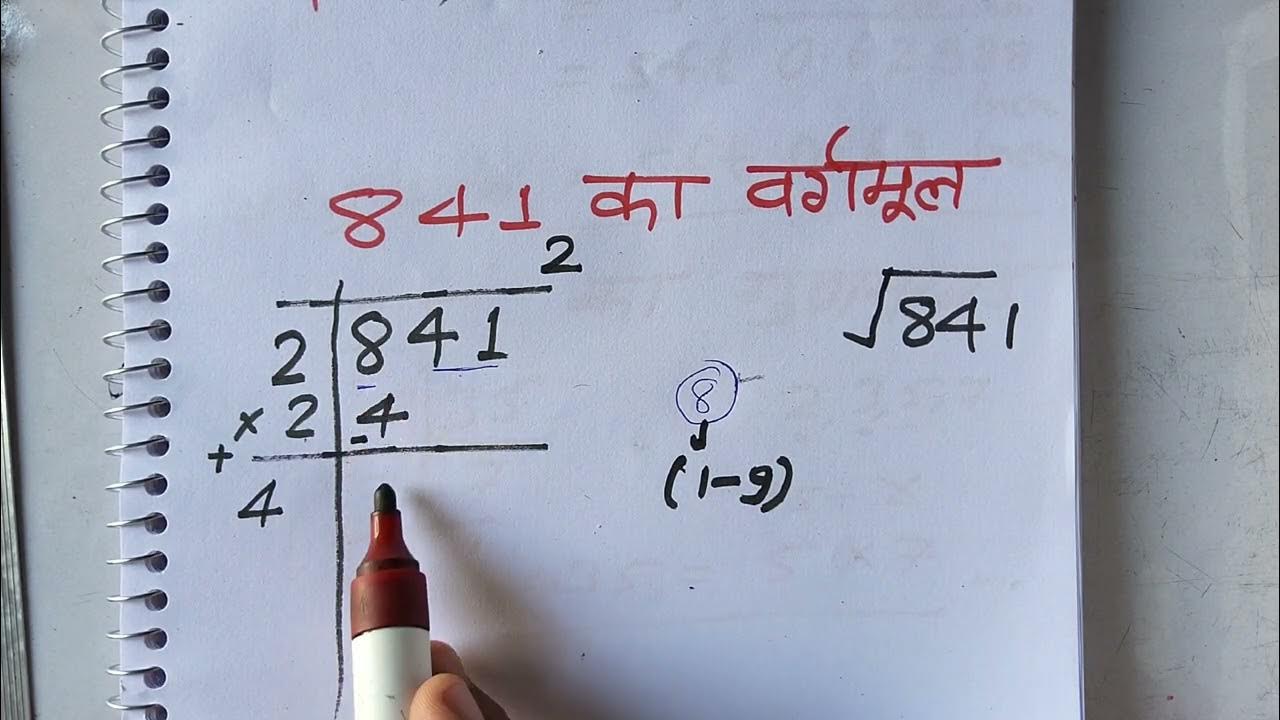 841 का वर्गमूल
2
2 841
× 2 4
-
+
4
√841
8
(1-9)